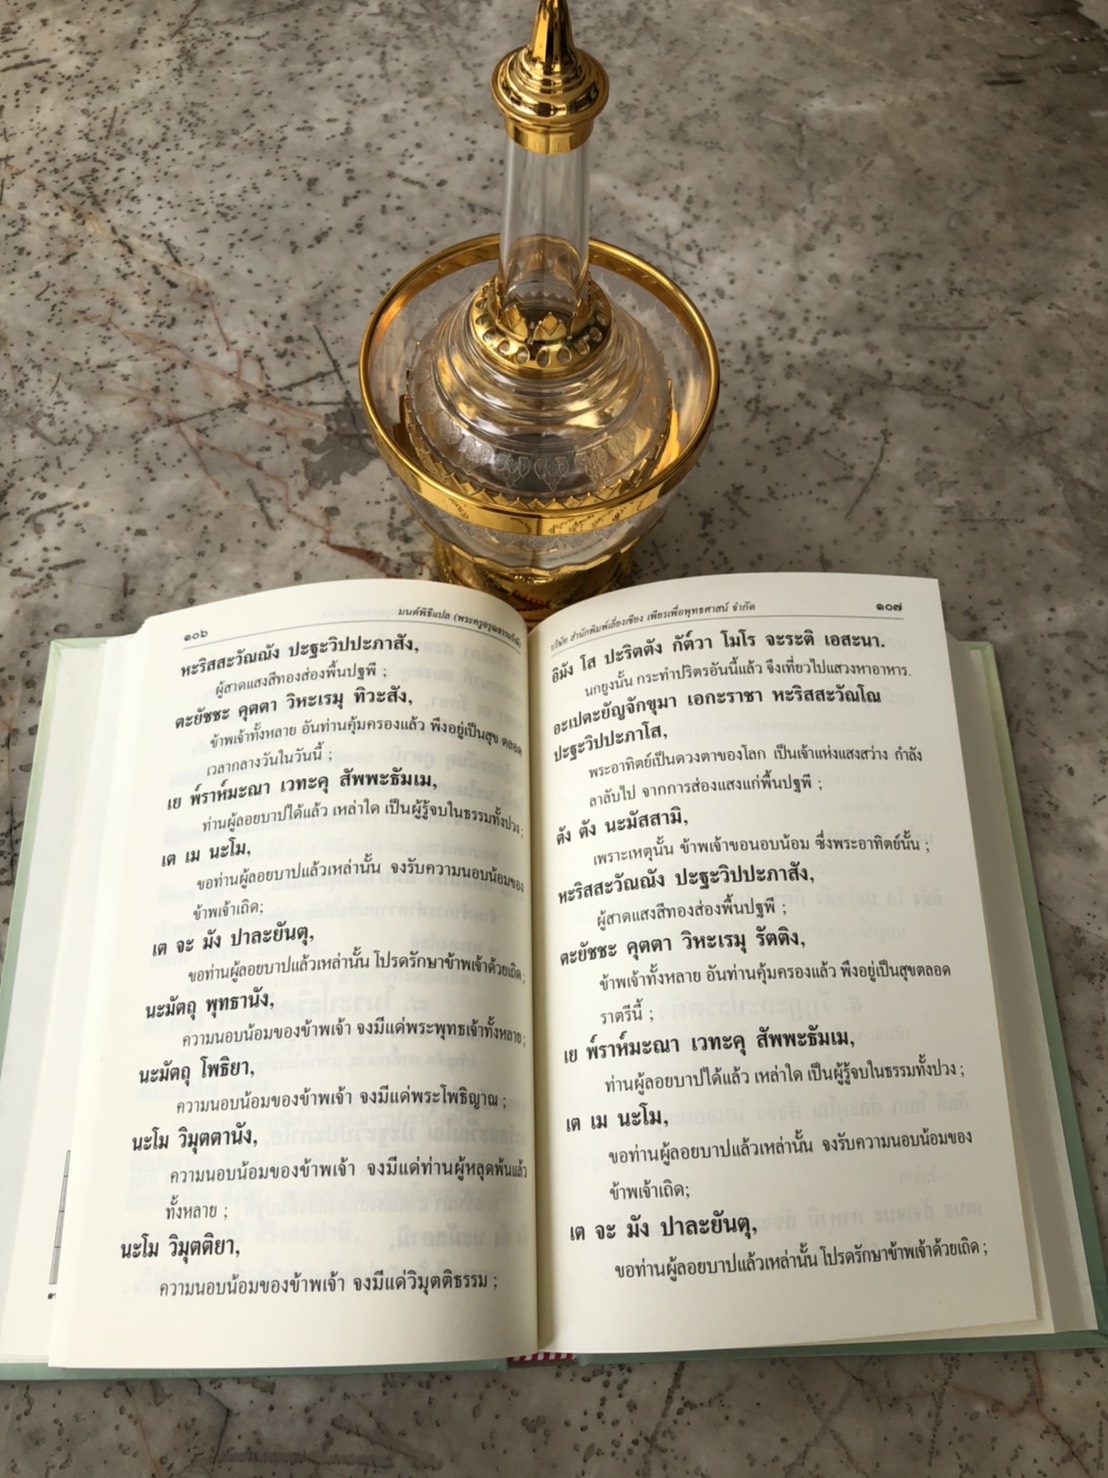 ๑๐๖
มนต์พิธีแปล
หะริสสะวัณณัง ปะฐะวิปปะภาสัง,
ผู้สาดแสงสีทองส่องพื้นปฐพี ;
ตะยัชชะ คุตตา วิหะเรมุ ทิวะสัง,
ข้าพเจ้าทั้งหลาย อันท่านคุ้มครองแล้ว พึงอยู่เป็นสุข ตลอด
เวลากลางวันในวันนี้ ;
เย พ๎ราห๎มะณา เวทะคุ สัพพะธัมเม,
ท่านผู้ลอยบาปได้แล้ว เหล่าใด เป็นผู้รู้จบในธรรมทั้งปวง ;
เต เม นะโม,
ขอท่านผู้ลอยบาปแล้วเหล่านั้น จงรับความนอบน้อมของ
ข้าพเจ้าเถิด;
เต จะ มัง ปาละยันตุ,
ขอท่านผู้ลอยบาปแล้วเหล่านั้น โปรดรักษาข้าพเจ้าด้วยเถิด ;
นะมัตถุ พุทธานัง,
ความนอบน้อมของข้าพเจ้า จงมีแด่พระพุทธเจ้าทั้งหลาย ;
นะมัตถุ โพธิยา,
ความนอบน้อมของข้าพเจ้า จงมีแด่พระโพธิญาณ ;
นะโม วิมุตตานัง,
ความนอบน้อมของข้าพเจ้า จงมีแด่ท่านผู้หลุดพ้นแล้ว
ทั้งหลาย ;
นะโม วิมุตติยา,
ความนอบน้อมของข้าพเจ้า จงมีแด่วิมุตติธรรม ;
บริษัท สำนักพิมพ์เลี่ยงเชียง เพียรเพื่อพุทธศาสน์ จำกัด
๑๐๗
อิมัง โส ปะริตตัง กัต๎วา โมโร จะระติ เอสะนา.
นกยูงนั้น กระทำปริตรอันนี้แล้ว จึงเที่ยวไปแสวงหาอาหาร.
อะเปตะยัญจักขุมา เอกะราชา หะริสสะวัณโณ
ปะฐะวิปปะภาโส,
พระอาทิตย์เป็นดวงตาของโลก เป็นเจ้าแห่งแสงสว่าง กำลัง
ลาลับไป จากการส่องแสงแก่พื้นปฐพี ;
ตัง ตัง นะมัสสามิ,
เพราะเหตุนั้น ข้าพเจ้าขอนอบน้อม ซึ่งพระอาทิตย์นั้น ;
หะริสสะวัณณัง ปะฐะวิปปะภาสัง,
ผู้สาดแสงสีทองส่องพื้นปฐพี ;
ตะยัชชะ คุตตา วิหะเรมุ รัตติง,
ข้าพเจ้าทั้งหลาย อันท่านคุ้มครองแล้ว พึงอยู่เป็นสุขตลอด
ราตรีนี้ ;
เย พ๎ราห๎มะณา เวทะคุ สัพพะธัมเม,
ท่านผู้ลอยบาปได้แล้ว เหล่าใด เป็นผู้รู้จบในธรรมทั้งปวง ;
เต เม นะโม,
ขอท่านผู้ลอยบาปแล้วเหล่านั้น จงรับความนอบน้อมของ
ข้าพเจ้าเถิด;
เต จะ มัง ปาละยันตุ,
ขอท่านผู้ลอยบาปแล้วเหล่านั้น โปรดรักษาข้าพเจ้าด้วยเถิด ;